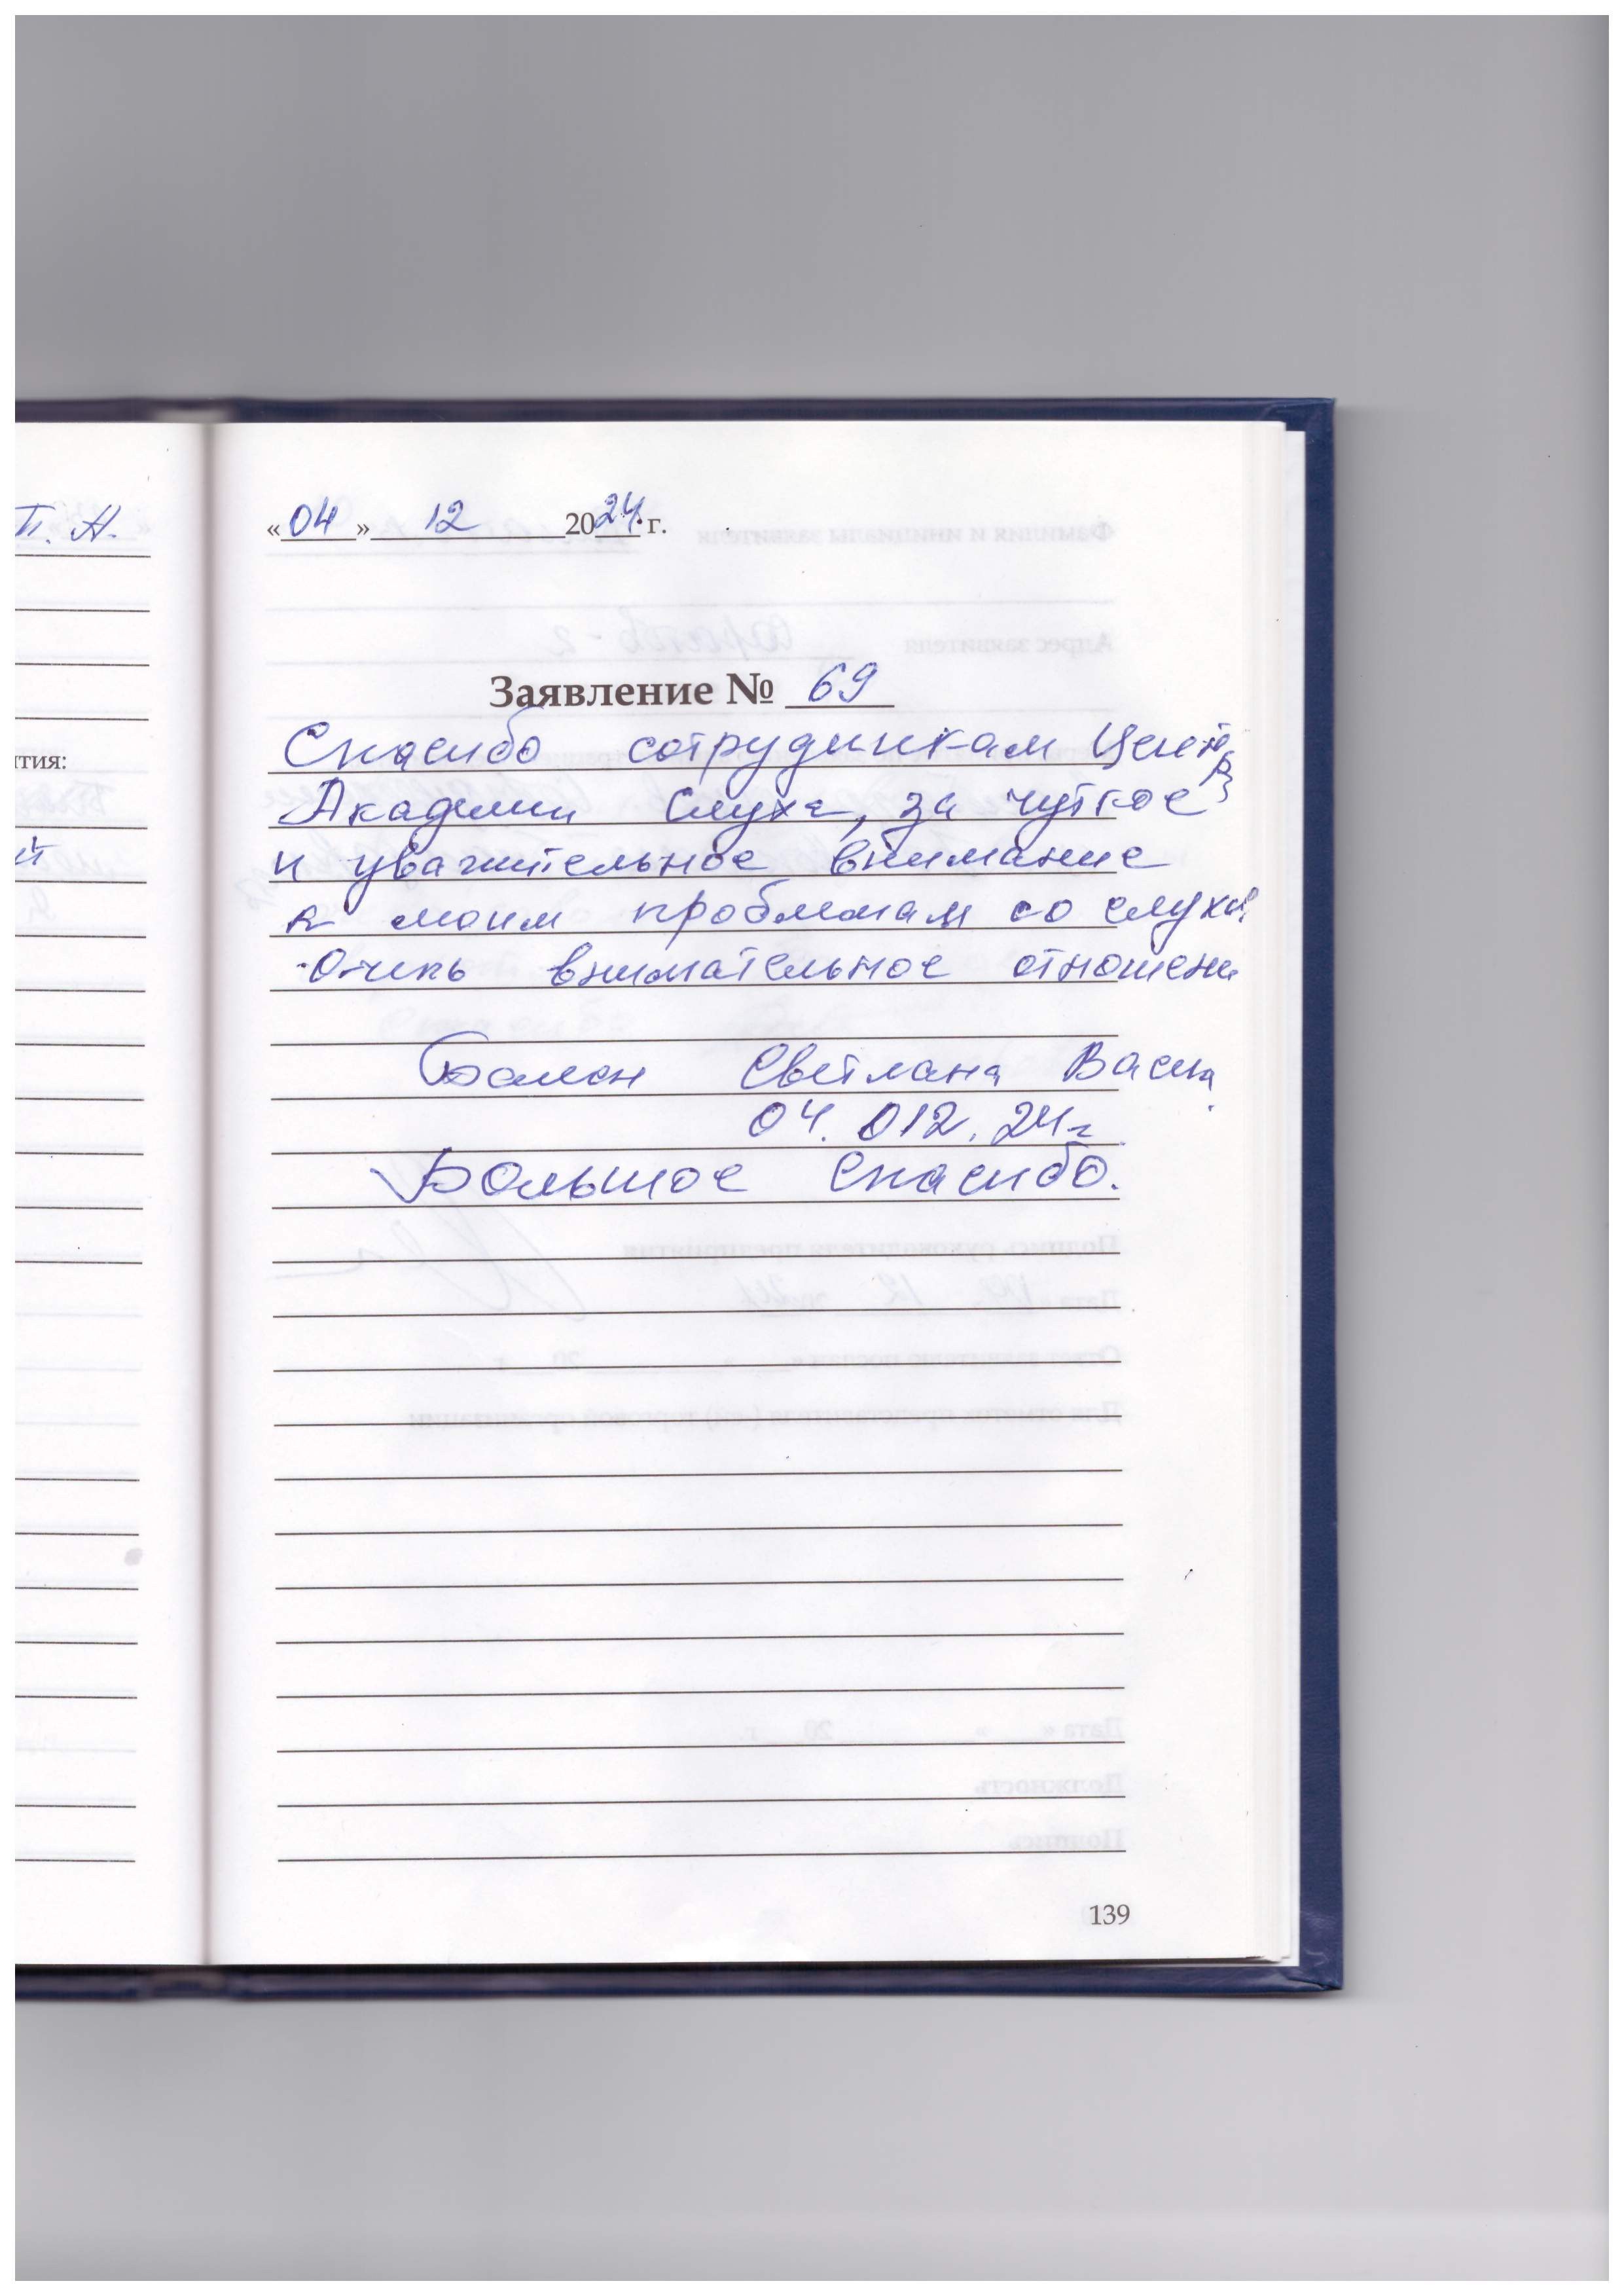 П. А.
тия:
й
«04» 12 2024 г.
Заявление № 69
Спасибо сотрудникам Центра
Академии слуха, за чуткое
и уважительное внимание
к моим проблемам со слухом
Очень внимательное отношени
Светлана Васил.
04. 012. 24г
Большое спасибо.
139